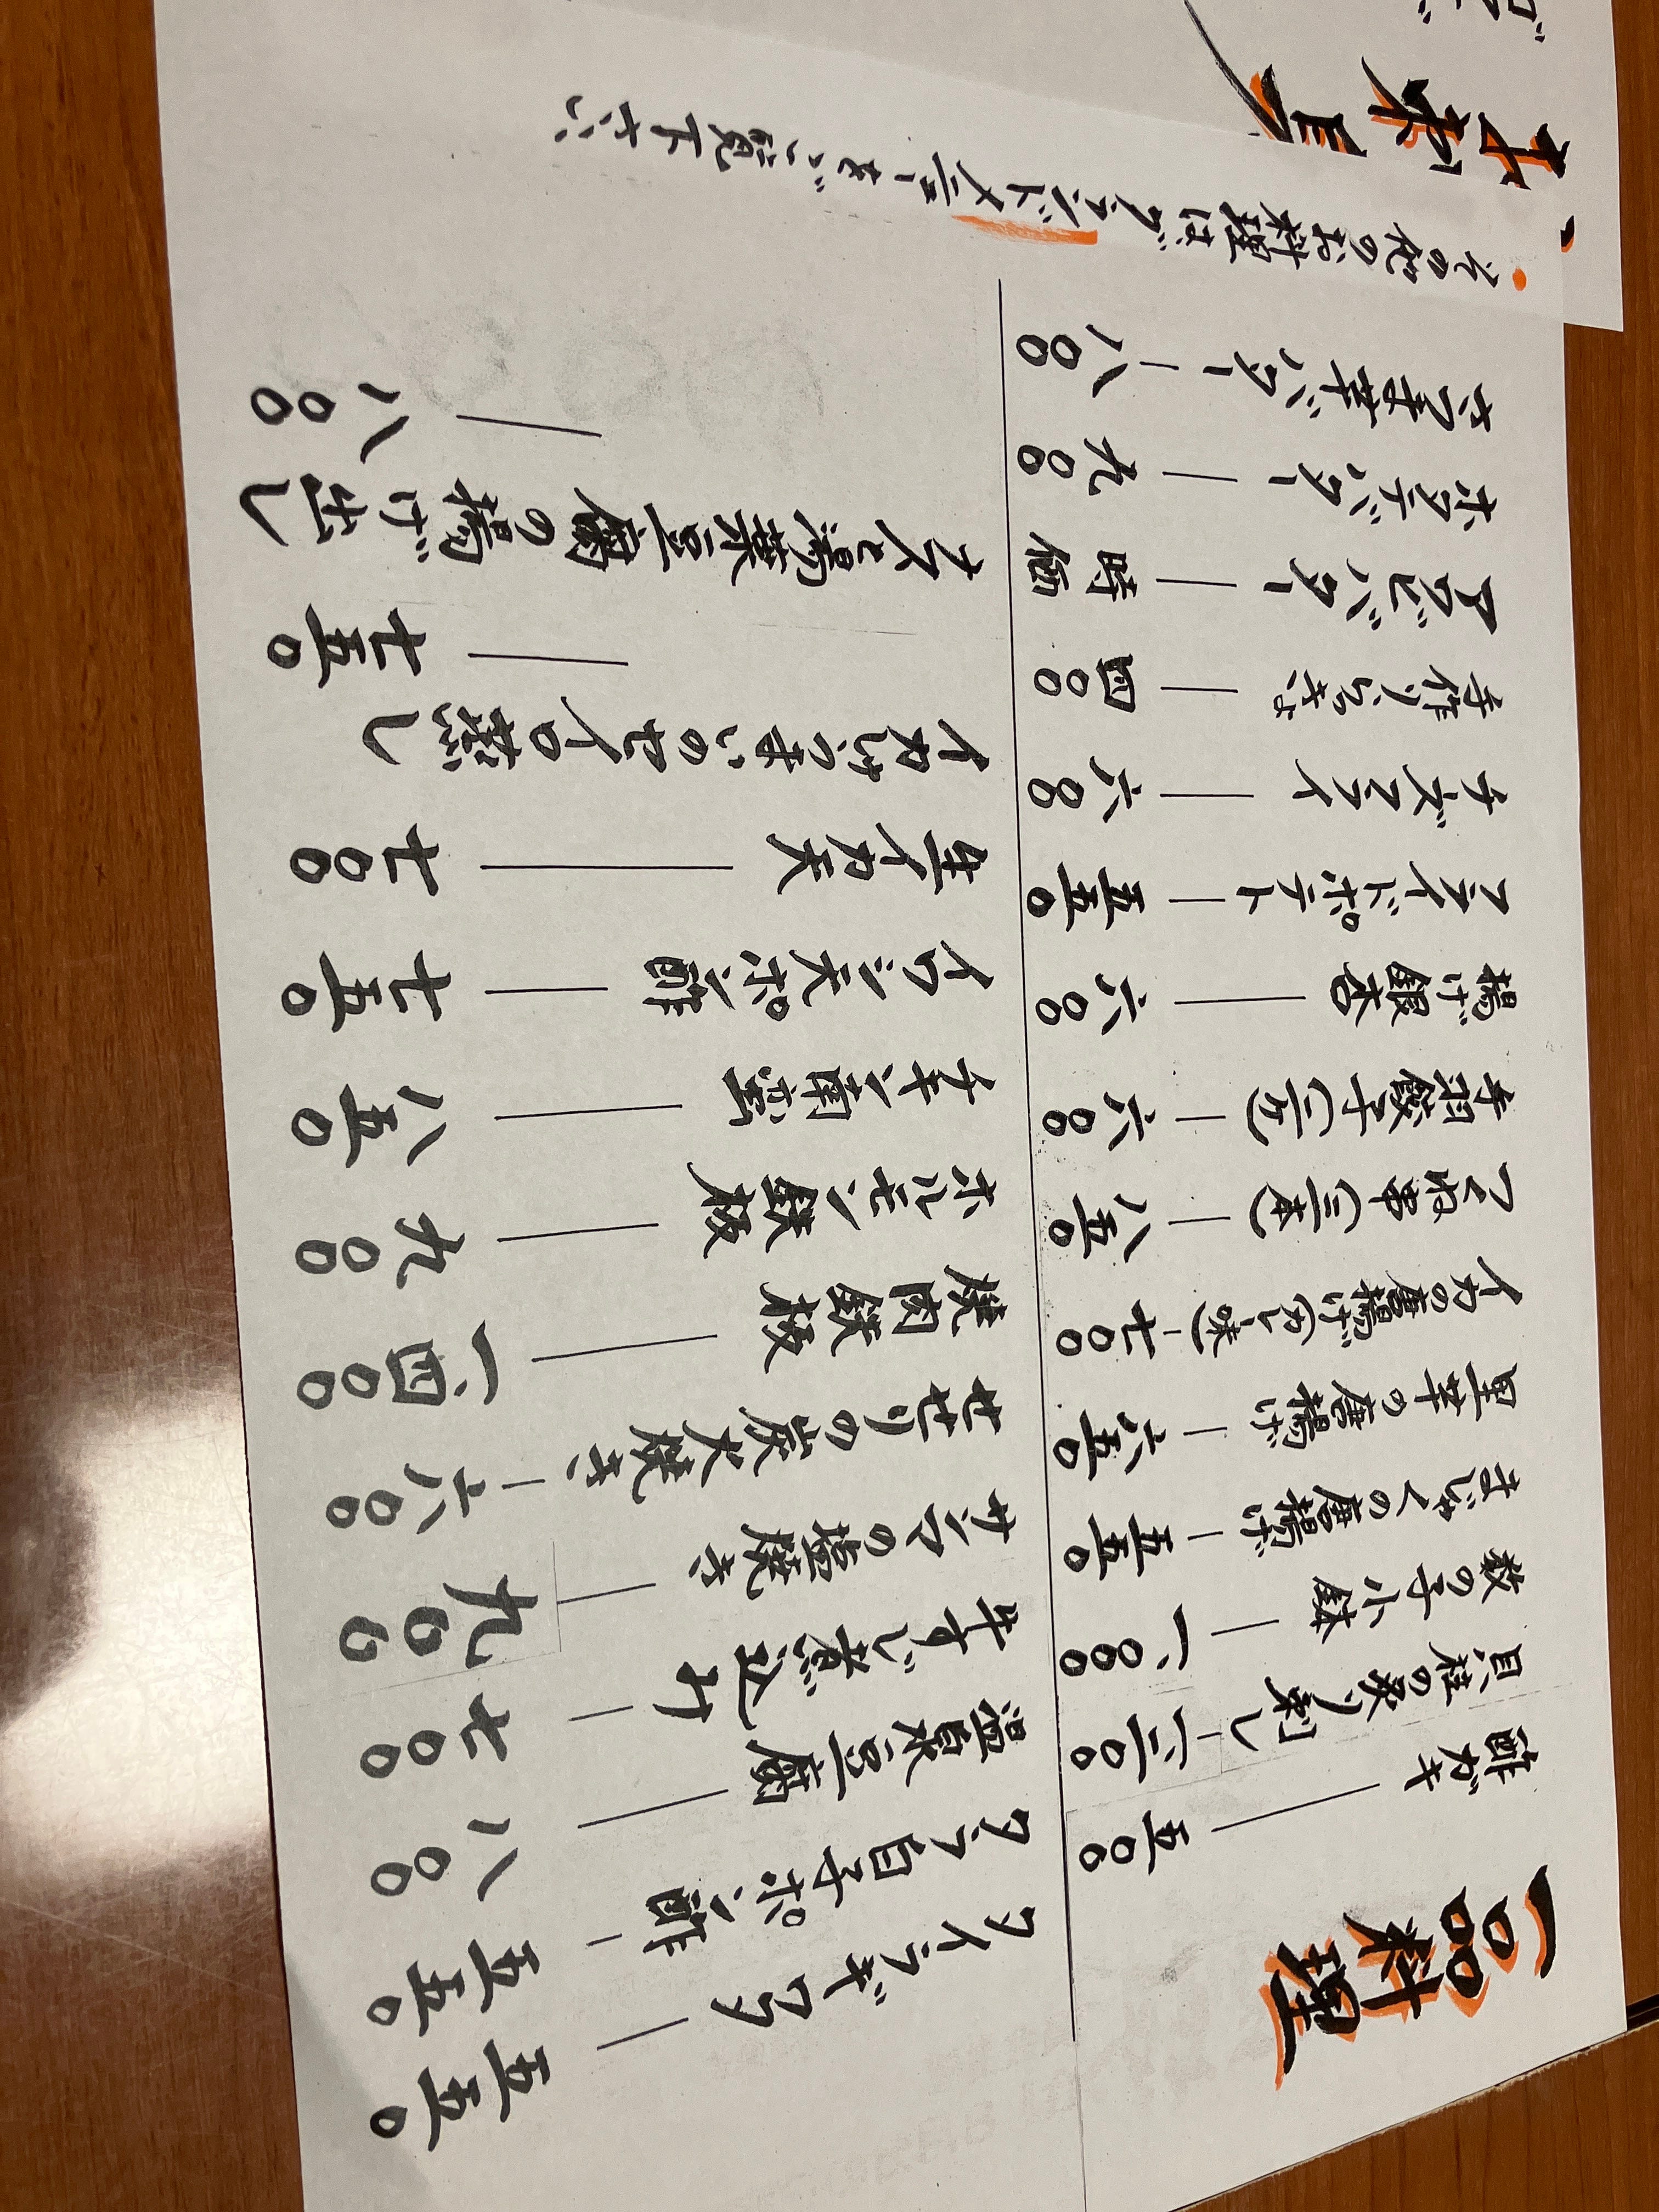 一品料理
酢ガキ 五〇〇
貝柱の炙り刺し 一、二〇〇
数の子小鉢 一、〇〇〇
まじゃくの唐揚げ 五五〇
里芋の唐揚げ 六五〇
イカの唐揚げ(カレー味) 七〇〇
つくね串(三本) 八五〇
手羽餃子(二ケ) 六〇〇
揚げ銀杏 六〇〇
フライドポテト 五五〇
チーズフライ 六〇〇
手作りらっきょ 四〇〇
アワビバター 時価
ホタテバター 九〇〇
さつま芋バター 八〇〇
タイラギワタ 五五〇
タラ白子ポン酢 五五〇
温泉豆腐 八〇〇
牛すじ煮込み 七〇〇
サンマの塩焼き 九〇〇
せせりの炭火焼き 六〇〇
焼肉鉄板 一、四〇〇
ホルモン鉄板 九〇〇
チキン南蛮 八五〇
イワシ天ポン酢 七五〇
生イカ天 七〇〇
イカしゅうまいのセイロ蒸し 七五〇
ナスと湯葉豆腐の揚げ出し 八〇〇
・その他のお料理はグランドメニューをご覧下さい
お刺身